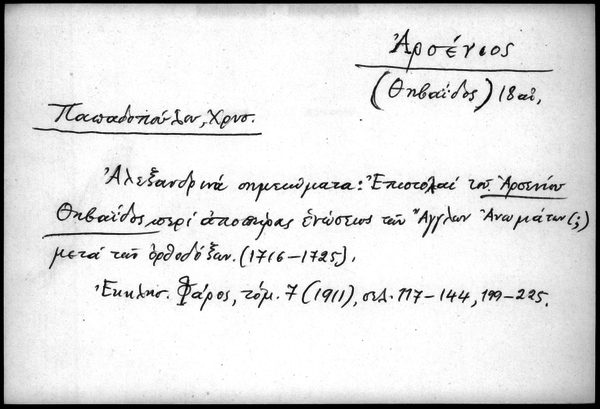 Ἀρσένιος
(Θηβαΐδος) 18 αἰ.
Παπαδοπούλου, Χρυσ.
Ἀλεξανδρινά σημειώματα: Ἐπιστολαί τοῦ Ἀρσενίου
Θηβαΐδος περί ἀποπείρας ἑνώσεως τῶν Ἄγγλων Ἀνωμότων (;)
μετά τῶν ὀρθοδόξων. (1716-1725).
Ἐκκλησ. Φάρος, τόμ. 7 (1911), σελ. 117-144, 199-225.